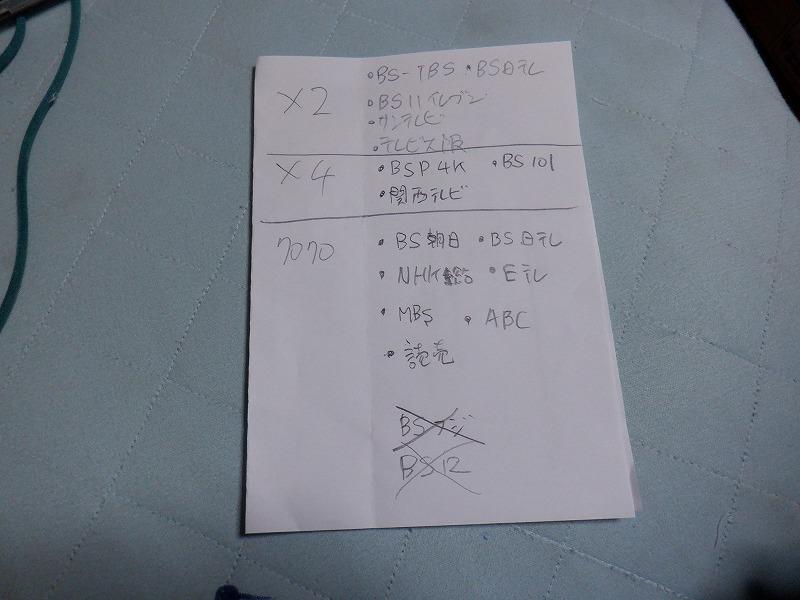 ×2
・BS-TBS ・BS日テレ
・BS11イレブン
・サンテレビ
・テレビ大阪
×4
・BSP4K ・BS101
・関西テレビ
・BS朝日 ・BS日テレ
・NHK総 ・Eテレ
・MBS ・ABC
・読売
BSフジ
BS12